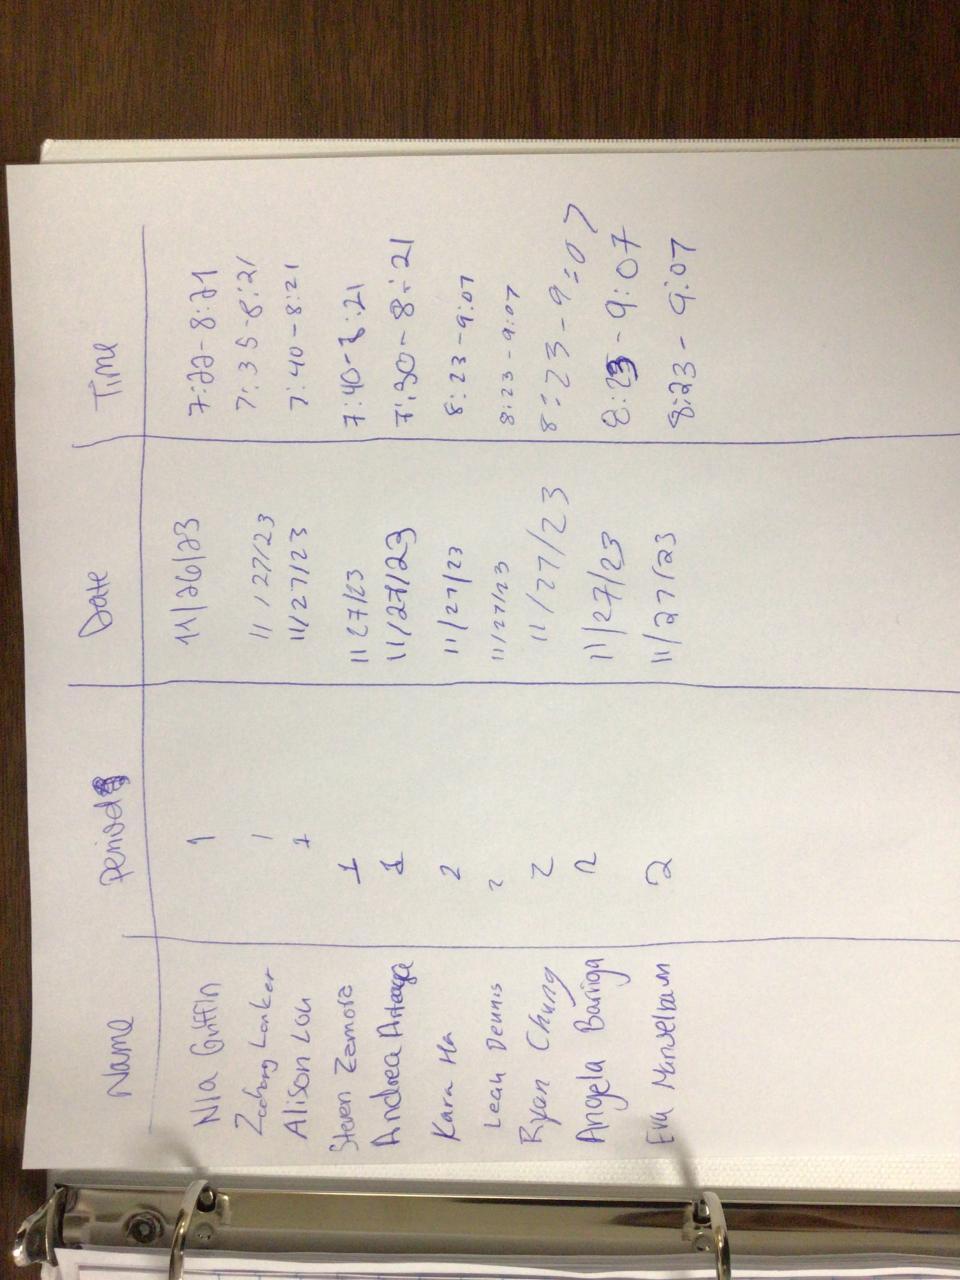 Name Period Date Time
Nia Griffin 1 11/26/23 7:22-8:21
Lanker 1 11/27/23 7:35-8:21
Alison Lou 1 11/27/23 7:40-8:21
Steven Zamora 1 11 27/23 7:40-8:21
Andrea Arteaga 1 11/27/23 7:30-8:21
Kara Ha 2 11/27/23 8:23-9:07
Leah Dennis 2 11/27/23 8:23-9:07
Ryan Chung 2 11/27/23 8:23-9:07
Angela Barriga 2 11/27/23 8:23-9:07
Eva 2 11/27/23 8:23-9:07